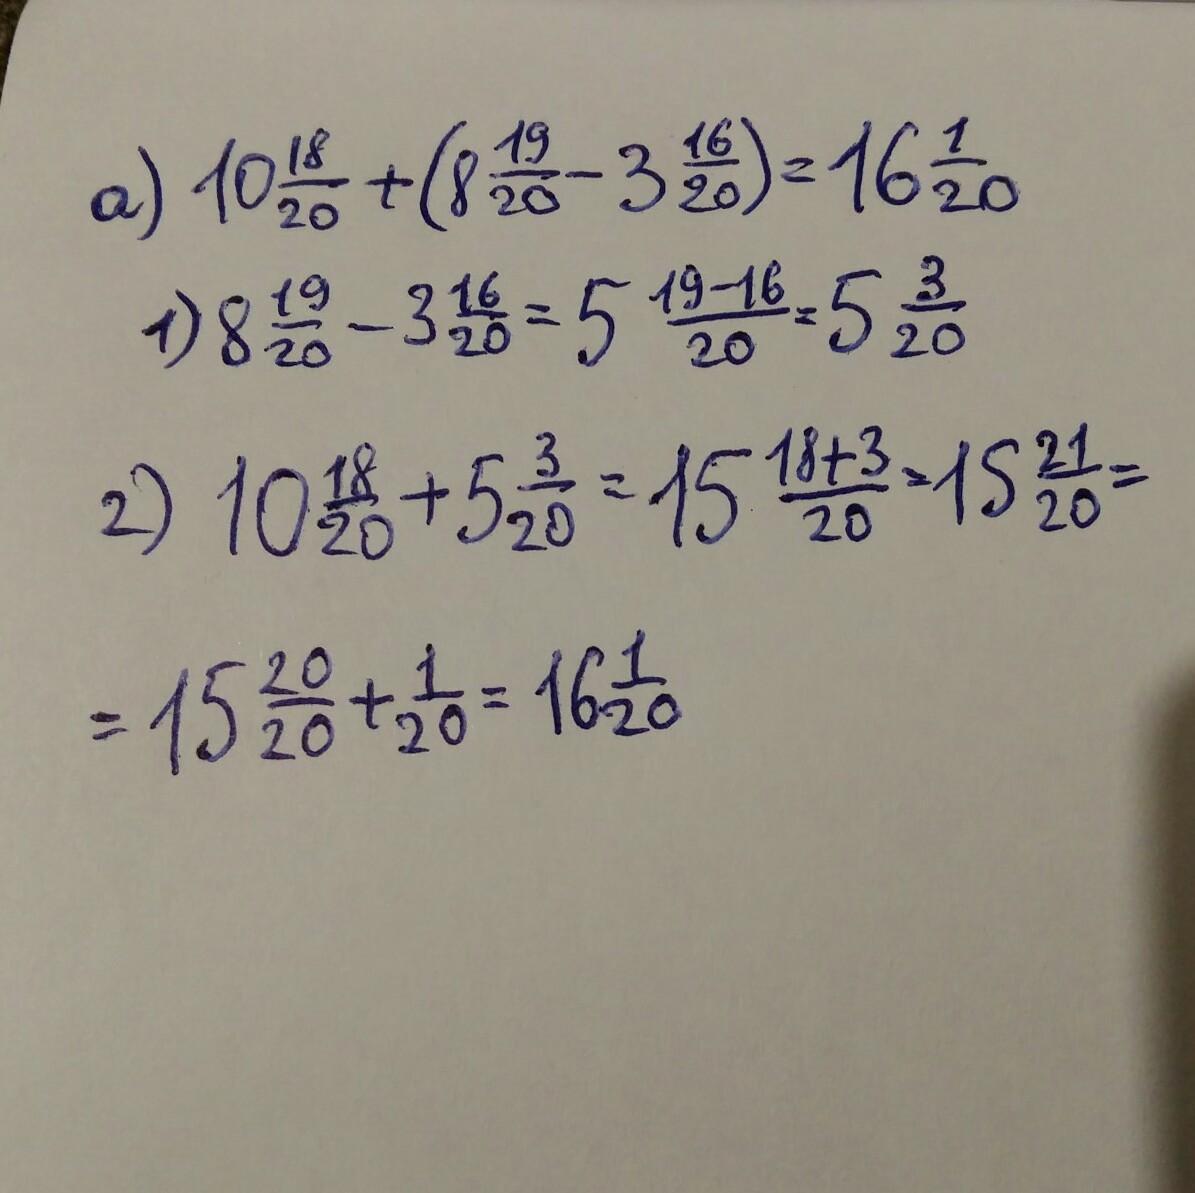 а) 10 18/20 + (8 19/20 - 3 16/20) = 16 1/20
1) 8 19/20 - 3 16/20 = 5 19-16/20 = 5 3/20
2) 10 18/20 + 5 3/20 = 15 18+3/20 = 15 21/20 =
= 15 20/20 + 1/20 = 16 1/20